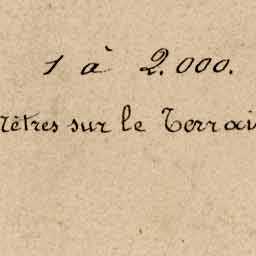 1 à 2.000.
Mètres sur le Terrain